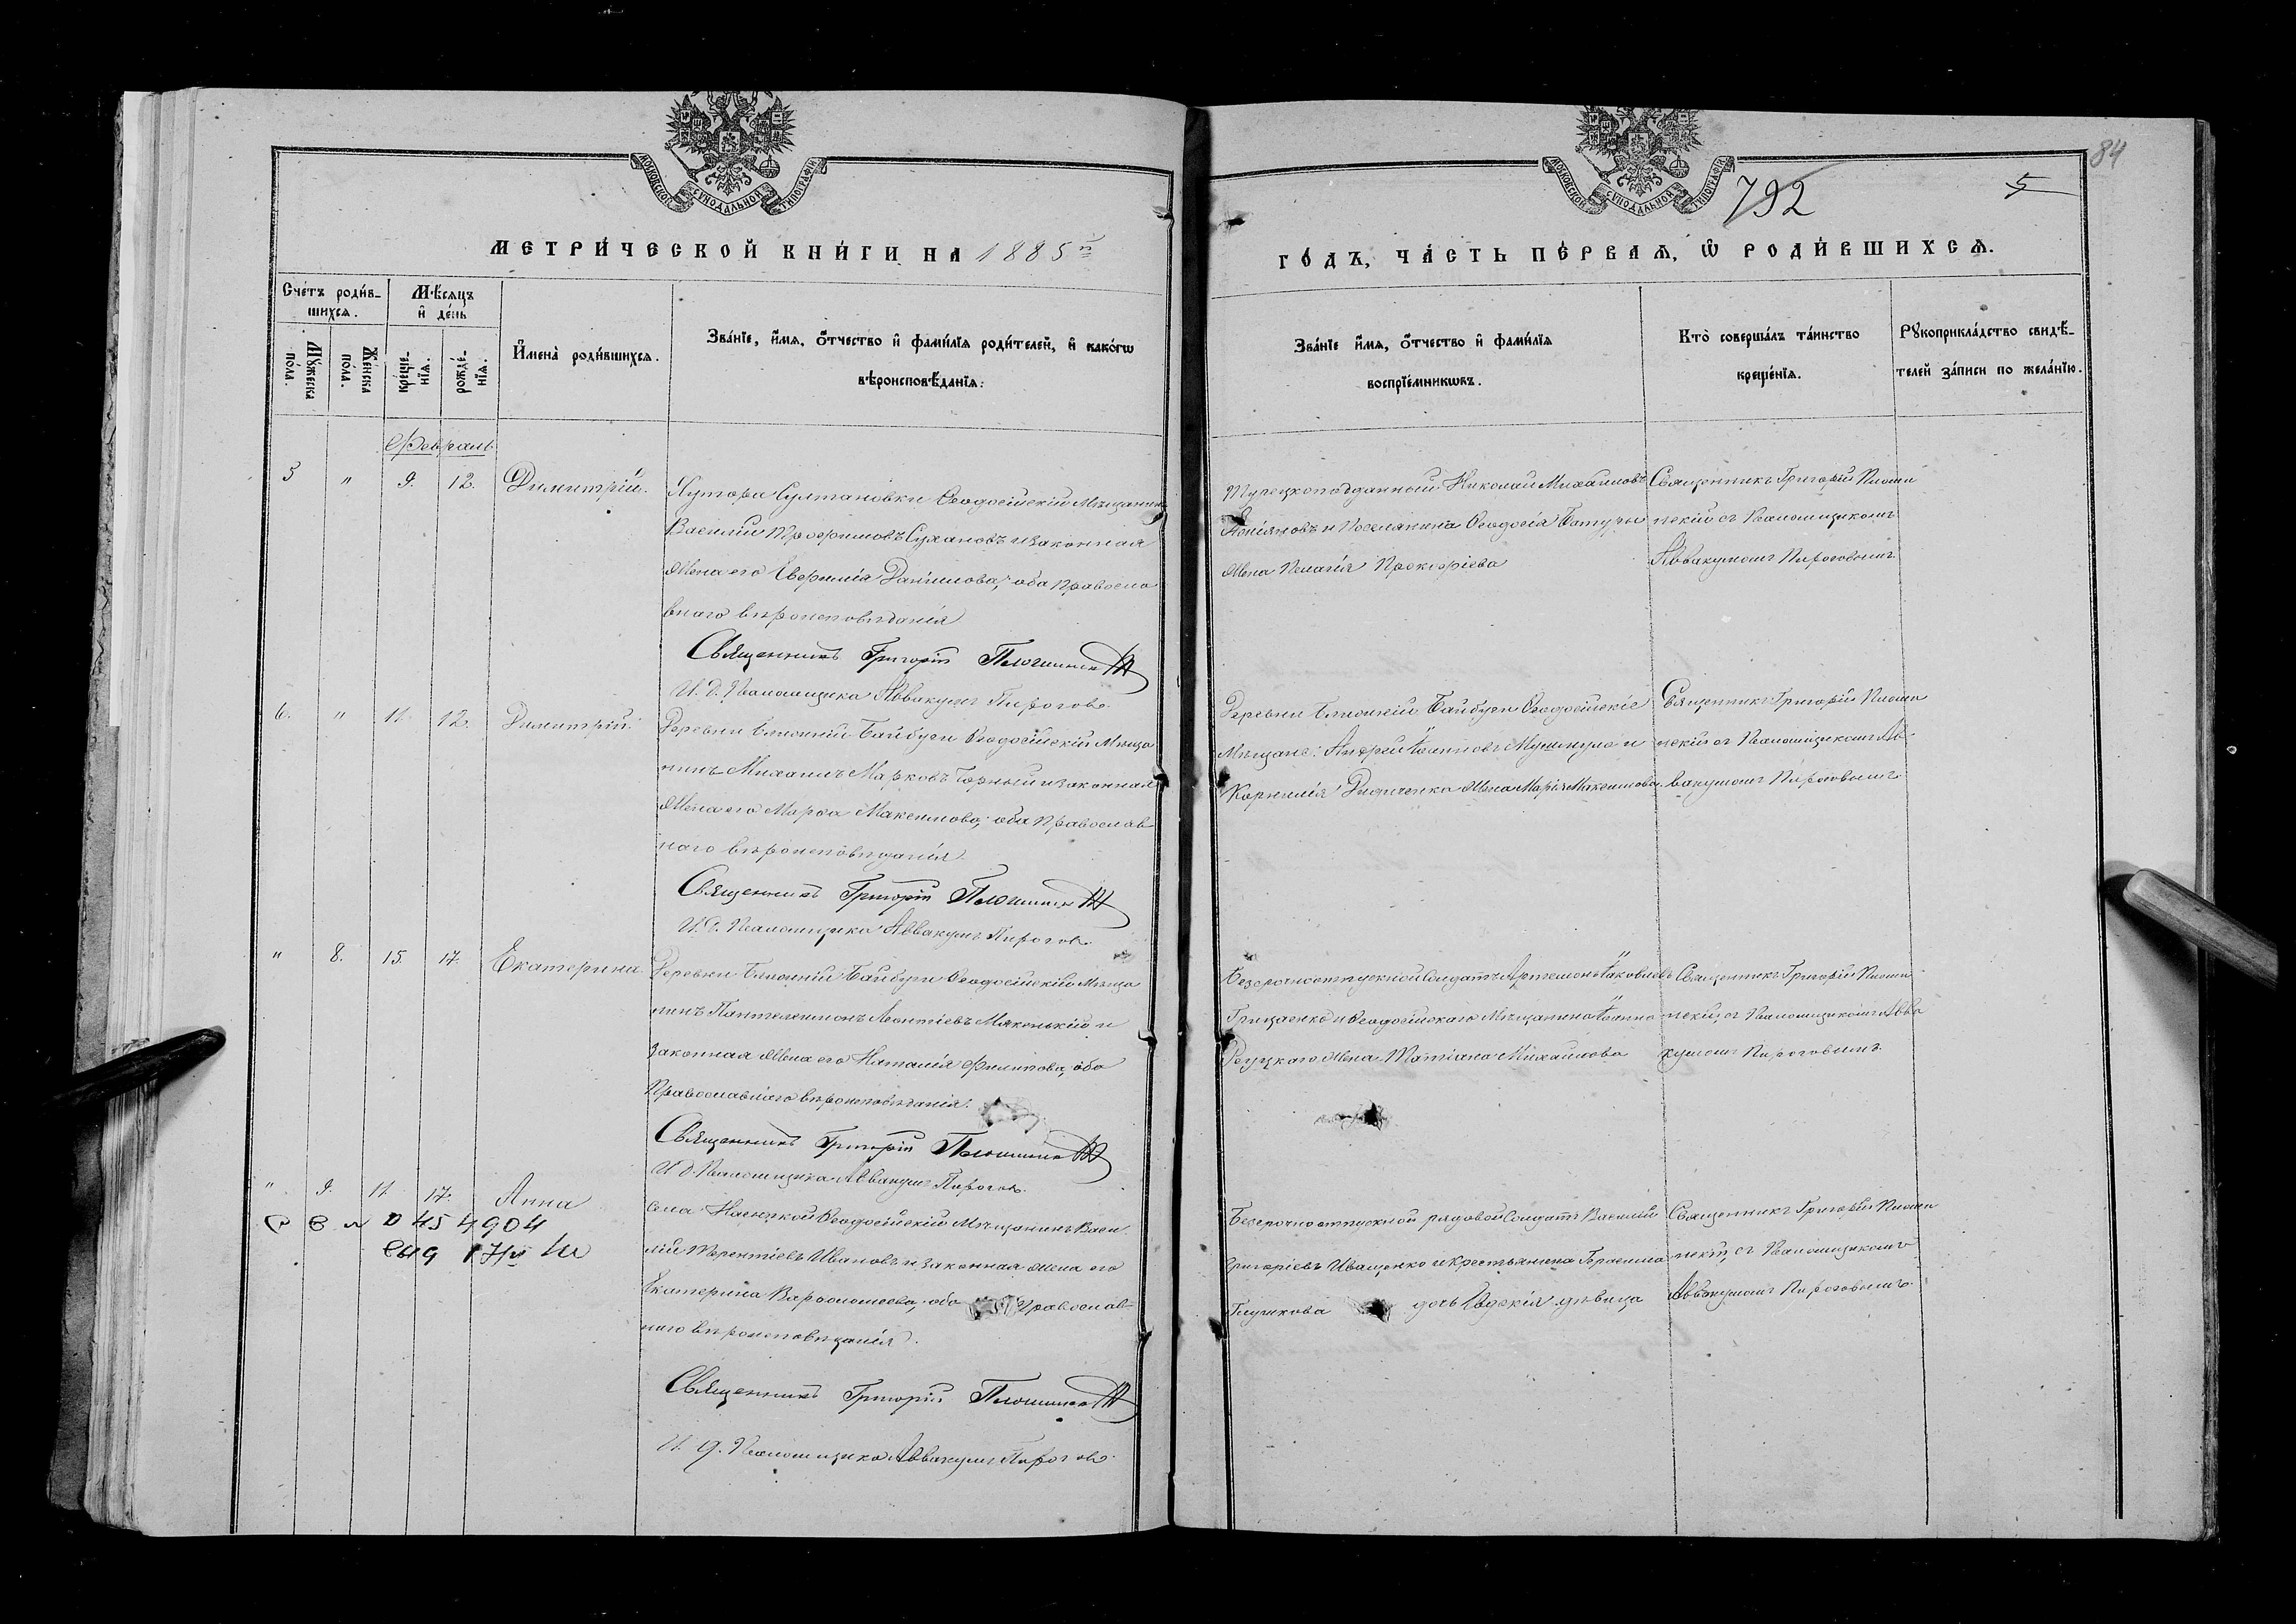 84
792
5
МОСКОВСКОЙ СѴНОДАЛЬНОЙ ТИПОГРАФІИ
МОСКОВСКОЙ СѴНОДАЛЬНОЙ ТИПОГРАФІИ
МЕТРИ́ЧЕСКОЙ КНИ́ГИ НА 1885
ГО́ДЪ, ЧА́СТЬ ПЕ́РВАѦ, Ѽ РОДИ́ВШИХСѦ.
Сче́тъ роди́в-
шихсѧ.
Мѣ́сѧцъ
и҆ де́нь
Мꙋ́жеска по́ла.
Же́нска по́ла.
креще́-нїѧ.
рожде́-нїѧ.
И҆мена̀ роди́вшихсѧ.
Зва́нїе, и҆́мѧ, ѻ҆́тчество и҆ фами́лїѧ роди́телей, и҆ како́гѡ
вѣроисповѣ́данїѧ:
Зва́нїе и҆́мѧ, ѻ҆́тчество и҆ фами́лїѧ
воспрїе́мникѡвъ.
Кто̀ соверша́лъ та́инство
креще́нїѧ.
Рꙋкоприкла́дство свидѣ́-
телей за́писи по жела́нїю.
Февраль
5 " 9. 12. Димитрій.
Хутора Султановки Ѳеодосійскій Мѣщанинъ
Василий Трофимовъ Сухановъ и законная
жена его Евфимія Даніилова, оба Правосла
внаго вѣроисповѣданія
Священникъ Григорій
И. д. Псаломщика Аввакумъ Пироговъ.
Турецкоподданный Николай Михаиловъ
и Поселянина Ѳеодосія
жена Пелагія Прокофіева
Священникъ Григорій
скій съ Псаломщикомъ
Аввакумомъ Пироговымъ
6. " 11. 12. Димитрій.
Деревни Ближній Байбуги Ѳеодосійскій Мѣща
нинъ Михаилъ Марковъ Чорный и законная
жена его Марѳа Максимова, оба Православ
наго вѣроисповѣданія.
Священникъ Григорій
И. д. Псаломщика Аввакумъ Пироговъ.
Деревни Ближній Байбуги Ѳеодосійскіе
Мѣщане: Андрей Іоанновъ и
Корнилія жена Марія Максимова.
Священникъ Григорій
скій съ Псаломщикомъ Ав-
вакумомъ Пироговымъ.
" 8. 15. 17. Екатерина.
Деревни Ближній Байбуги Ѳеодосійскій Мѣща
нинъ Пантелеимонъ Леонтіевъ Макенькій и
законная жена его Наталія Филипова, оба
Православнаго вѣроисповѣданія.
Священникъ Григорій
И. д. Псаломщика Аввакумъ Пироговъ.
Безсрочноотпускной Солдатъ Артемонъ Іаковлевъ
Грищенко и Ѳеодосійскаго Мѣщанина Іоанна
Редуцкаго жена Татіана Михаилова
Священникъ Григорій
скій, съ Псаломщикомъ Авва
кумомъ Пироговымъ.
" 9. 11. 17. Анна
Села Насыпкой Ѳеодосійскій Мѣщанинъ Васи
лій Терентіевъ Ивановъ и законная жена его
Екатерина Варѳоломеева, оба Православ-
наго вѣроисповѣданія.
Священникъ Григорій
И. д. Псаломщика Аввакумъ Пироговъ.
Безсрочноотпускной рядовой Солдатъ Василій
Григоріевъ Иващенко и Крестьянина Герасима
Глушкова дочь дѣвица
Священникъ Григорій
скій, съ Псаломщикомъ
Аввакумомъ Пироговымъ.